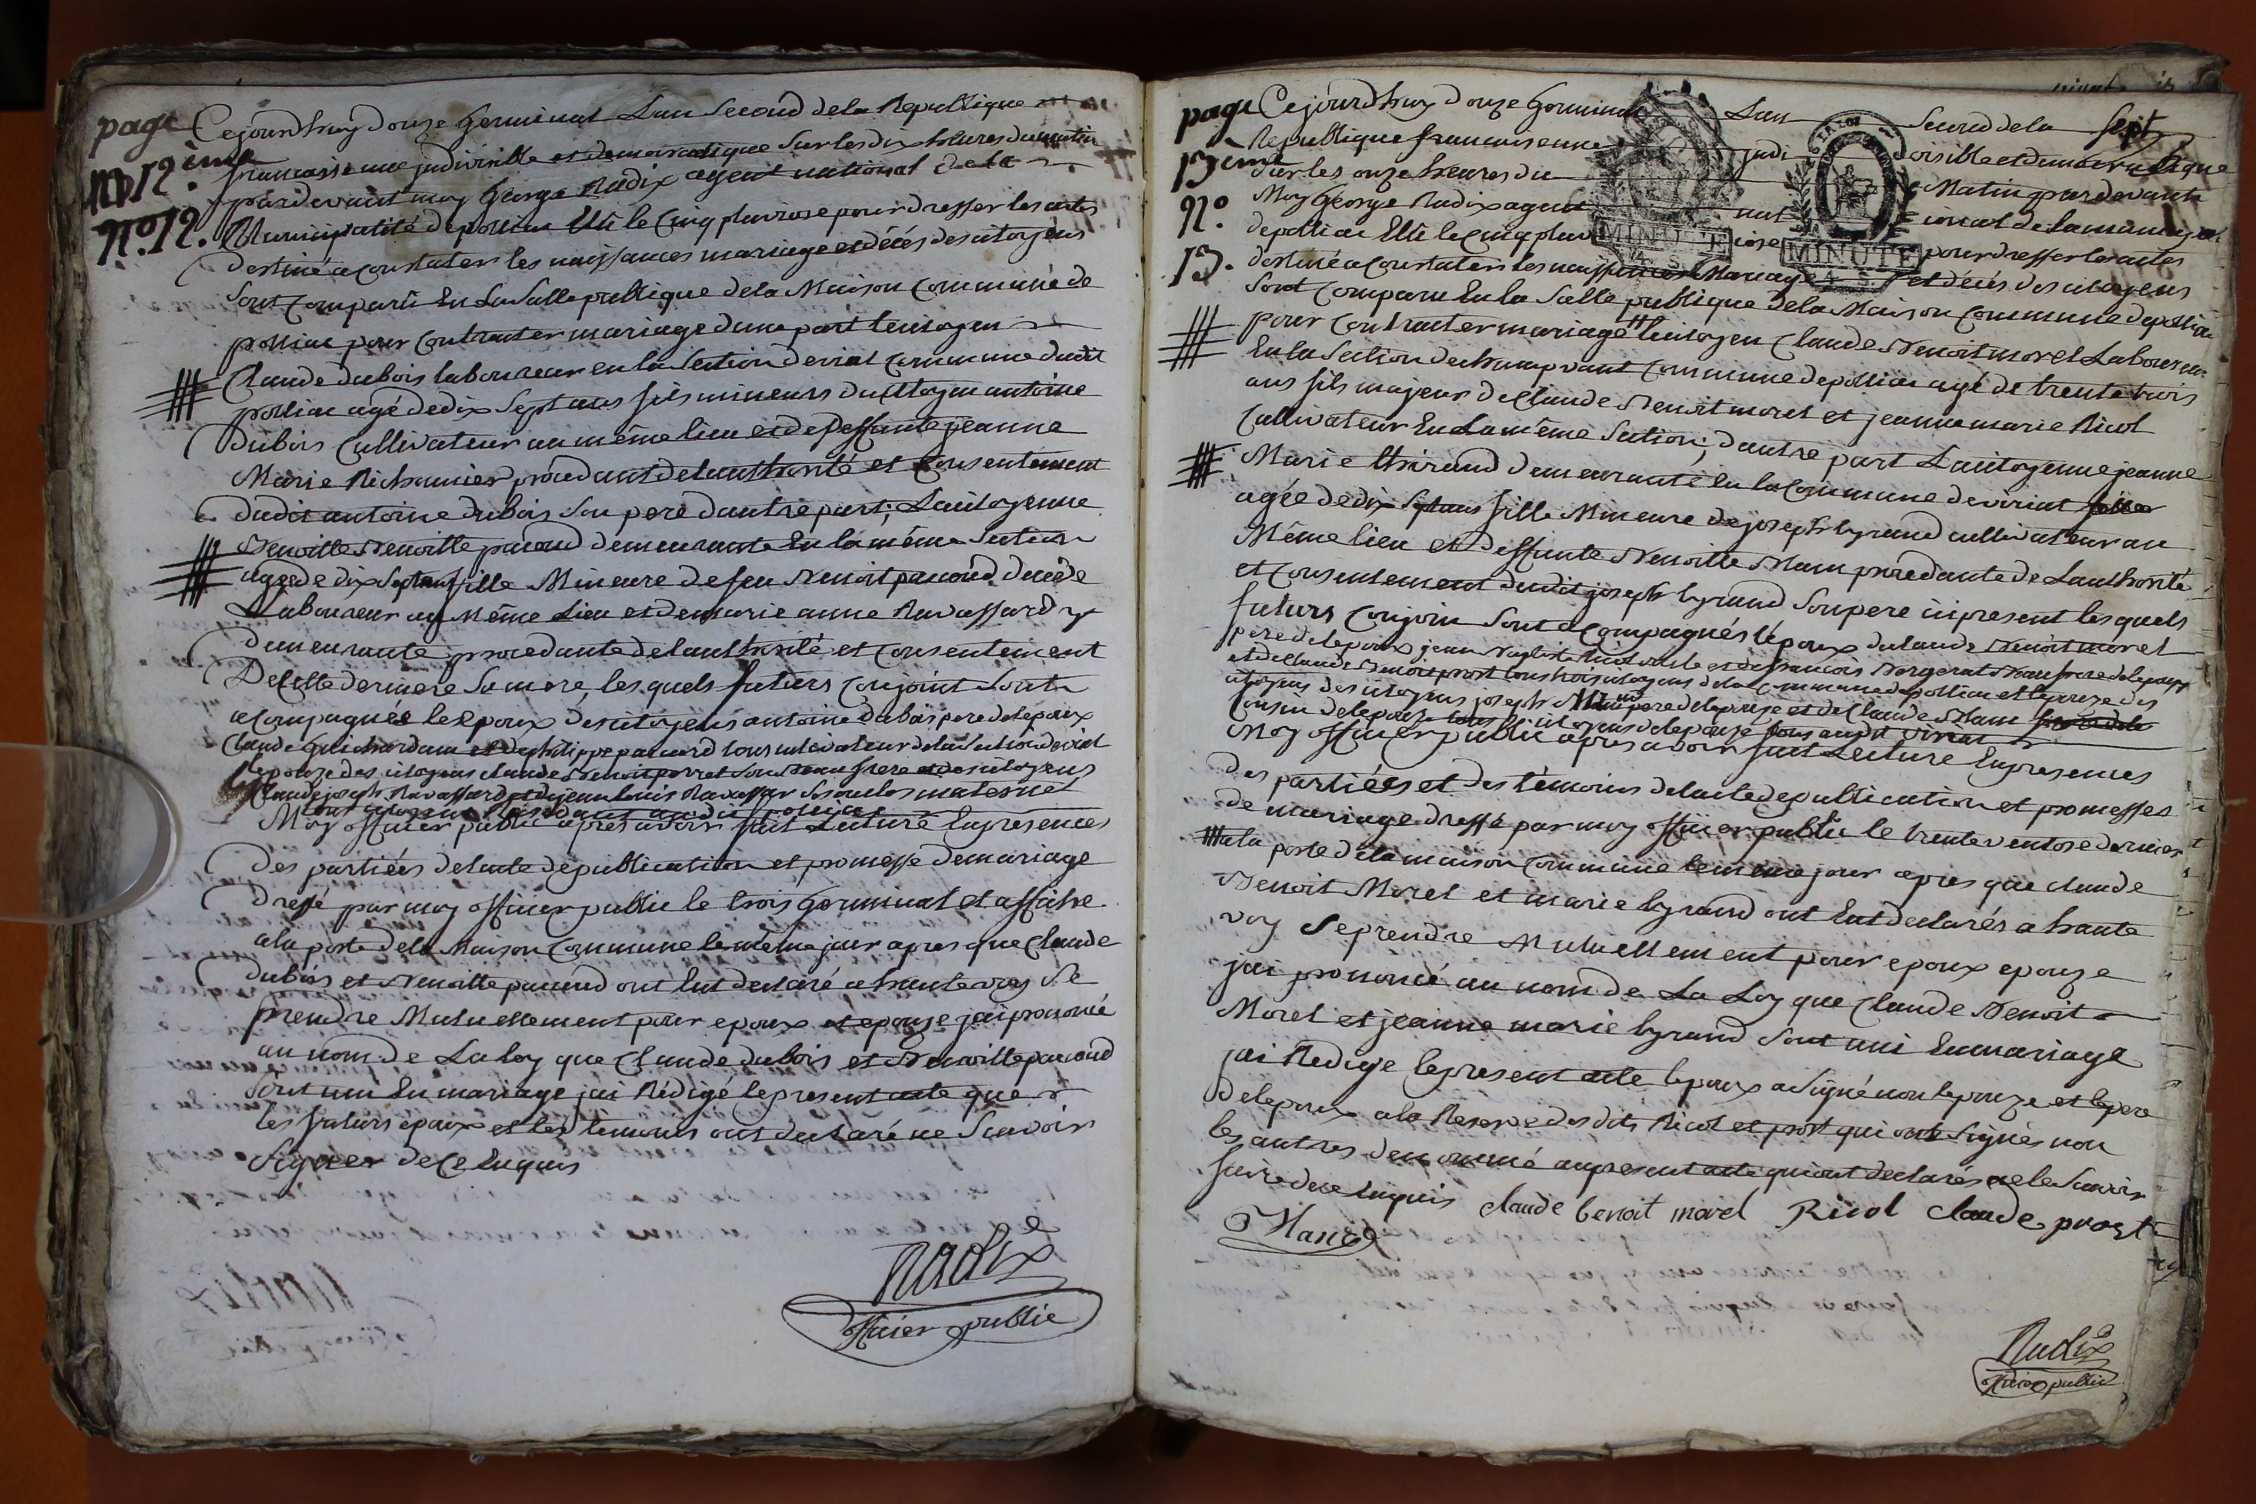 page
12ème
No. 12.
Cejourdhuy Douze Germinal Lan Second de la Republique
francaise une judivisible et democratique sur les dix heures du matin
pardevant moy George Radix agent national de la
Municipalité de polliac Elú le cinq pluviose pour dresser les actes
destiné a Constater les naissances mariage et décés des citoyens
sont comparû En La Salle publique de la Maison Commune de
polliac pour Contracter mariage dune part le citoyen
Claude dubois laboureur en la Section de viat commune dudit
polliac agé de dix sept ans fils mineurs du citoyen antoine
Dubois Cultivateur au même lieu et de deffunte jeanne
Marie Richonnier procedant de lauthorité et Consentement
dudit antoine dubois Son pere dautre part; La citoyenne
Benoitte pacoud demeurante En la même Section
agée de dix Sept ans fille Mineure de feu Benoit pacoud decedé
Laboureur au Même Lieu et de marie anne Ravassard
demeurante procedante de lauthorité et consentement
De Cette derniere Sa mere, les quels futurs conjoint Sont
acompagnés lepoux des citoyens antoine dubois pere de lepoux
Claude Guichardan et de philippe pacoud tous cultivateur de la Section de viat
lepouze des citoyens claude Benoit perret Son Beau frere et des citoyens
Claude joseph Ravassard et de jean Louis Ravassar Ses oncles maternel
tous citoyens Residant audit polliac
Moy officier public apres avoir fait Lecture En presences
des partiées de lacte de publication et promesse de mariage
Dressé par moy officier public le trois Germinal et affiche
a la porte de la Maison Commune le même jour apres que Claude
dubois et Benoitte pacoud ont Eut declaré a haute voy Se
prendre Mutuellement pour epoux et epouze jai prononcé
au nom de La loy que Claude dubois et Benoitte pacoud
Sont uni En mariage jai Rédigé le present acte que
les futurs epoux et les temoins ont declaré ne Scavoir
Signer de ce Enquis
Radix
officier public
page
13ème
No
13.
Sept
Cejourdhuy Douze Germinal Lan Second de la
Republique francaise une judivisible et democratique
Sur les onze heures du Matin pardevant
Moy George Radix agent national de la municipal
de polliac Elú le cinq pluviose pour dresser les actes
MINUTE
MINUTE
destiné a Constater les naissances Mariage et décés des citoyens
Sont Comparu En la Salle publique de la Maison Commune de polliac
pour Contracter mariage le citoyen Claude Benoit morel Laboureur
En la Section de champvant Commune de polliac agé de trente trois
ans fils majeur de Claude Benoit morel et jeanne marie Ricol
Cultivateur En La même Section; dautre part La citoyenne jeanne
Marie demeurante En la Commune de viriat
agée de dix Sept ans fille Mineure de joseph byrand cultivateur au
Même lieu et deffunte Benoitte Mam procedante de Lauthorité
et Consentement dudit joseph byrand Son pere ci present les quels
futurs Conjoin Sont acompagnés lépoux de claude Benoit morel
pere de lepoux jean Baptiste Ricol oncle et de francois Bergerat Beau frere de lepoux
et de Claude Benoit prost tous trois citoyens de la Commune de polliac et lepouze des
citoyens joseph pere de lepouze et de Claude Mam
Cousin de lepouze
Moy officier public apres avoir fait Lecture En presences
Des partiées et des témoins de lacte de publication et promesses
de mariage dressé par moy officier public le trente ventose dernier
a la porte de la maison Commune le même jour apres que claude
Benoit Morel et marie byrand ont Eut declarés a haute
voy Se prendre Mutuellement pour epoux epouze
jai prononcé au nom de La Loy que Claude Benoit
Morel et jeanne marie byrand Sont uni En mariage
jai Redigé le present acte lepoux a Signé non lepouze et le pere
de lepoux a la Reserve des dits Ricol et prost qui ont Signés non
les autres denommé au present acte qui ont declarés ne le Scavoir
faire de ce Enquis claude benoit morel Ricol Claude prost
Radix
officier public